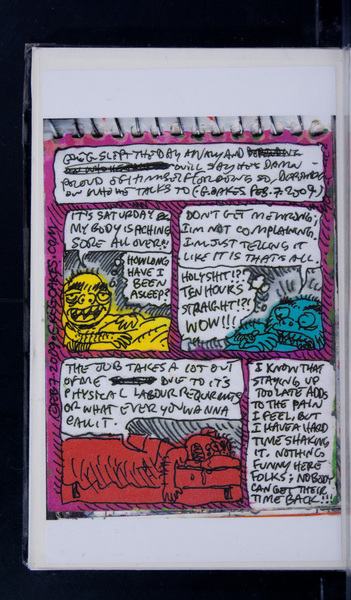 SLEPT THE DAY AWAY AND
WILL SAY HE'S DAMN
PROUD OF HIMSELF FOR DOING SO, DEPENDING
ON WHO HE TALKS TO (E.G.OAKES. FEB. 7. 2009)
IT'S SATURDAY &
MY BODY IS ACHING
SORE ALL OVER!!
HOW LONG
HAVE I
BEEN
ASLEEP?
DON'T GET ME WRONG;
I'M NOT COMPLAINING,
I'M JUST TELLING IT
LIKE IT IS THAT'S ALL.
HOLY SHIT!?!
TEN HOURS
STRAIGHT!?!
WOW!!!
THE JOB TAKES A LOT OUT
OF ME DUE TO IT'S
PHYSICAL LABOUR REQUIREMENTS
OR WHAT EVER YOU WANNA
CALL IT.
I KNOW THAT
STAYING UP
TOO LATE ADDS
TO THE PAIN
I FEEL, BUT
I HAVE A HARD
TIME SHAKING
IT. NOTHING
FUNNY HERE
FOLKS; NOBODY
CAN GET THEIR
TIME BACK!!!